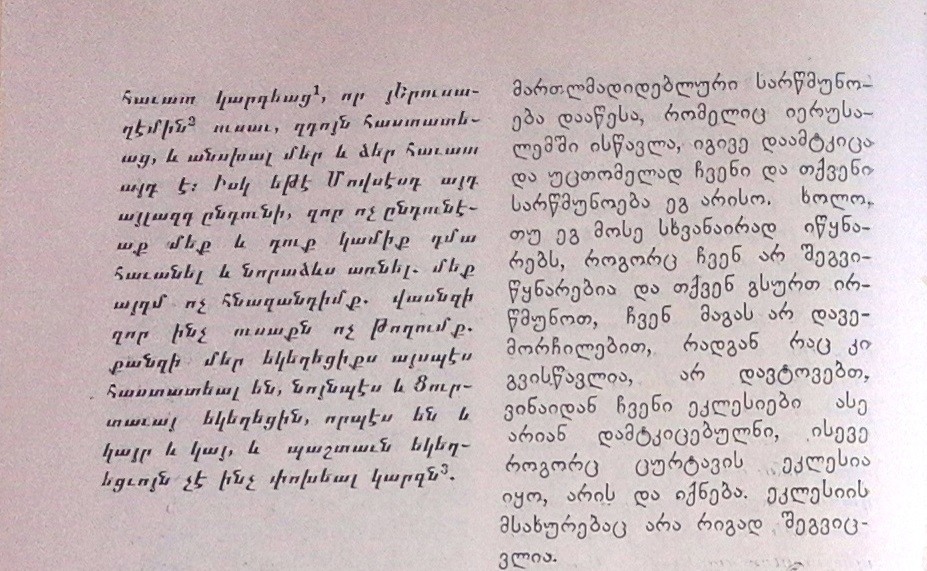 հաւատ կարգեաց¹, որ յերուսա-
ղէմին² ուսաւ, զդոյն հաստատե-
աց, և անսխալ մեր և ձեր հաւատ
այդ է: Իսկ եթէ Մովսէսդ այդ
այլազգ ընդունի, զոր ոչ ընդունէ-
աք մեք և դուք կամիք դմա
հաւանել և նորաձևս առնել. մեք
այդմ ոչ հնազանդիմք. վասնզի
զոր ինչ ուսաքն ոչ թողումք.
քանզի մեր եկեղեցիքս այսպէս
հաստատեալ են, նոյնպէս և Ցուր-
տաւայ եկեղեցին, որպէս են և
կայր և կայ, և պաշտաւն եկեղ-
եցւոյն չէ ինչ փոխեալ կարգն³.
მართლმადიდებლური სარწმუნო-
ება დააწესა, რომელიც იერუსა-
ლემში ისწავლა, იგივე დაამტკიცა
და უცთომელად ჩვენი და თქვენი
სარწმუნოება ეგ არისო. ხოლო,
თუ ეგ მოსე სხვანაირად იწყნა-
რებს, როგორც ჩვენ არ შეგვი-
წყნარებია და თქვენ გსურთ ირ-
წმუნოთ, ჩვენ მაგას არ დავე-
მორჩილებით, რადგან რაც კი
გვისწავლია, არ დავტოვებთ,
ვინაიდან ჩვენი ეკლესიები ასე
არიან დამტკიცებულნი, ისევე
როგორც ცურტავის ეკლესია
იყო, არის და იქნება. ეკლესიის
მსახურებაც არა რიგად შეგვიც-
ვლია.